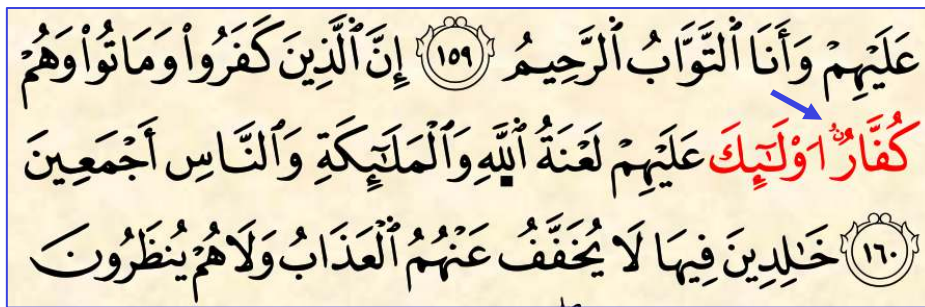 عَلَيْهِمْ وَأَنَا ٱلتَّوَّابُ ٱلرَّحِيمُ ١٥٩ إِنَّ ٱلَّذِينَ كَفَرُواْ وَمَاتُواْ وَهُمْ
كُفَّارٌ اوْلَٰٓئِكَ عَلَيْهِمْ لَعْنَةُ ٱللَّهِ وَٱلْمَلَٰٓئِكَةِ وَٱلنَّاسِ أَجْمَعِينَ
١٦٠ خَٰلِدِينَ فِيهَا لَا يُخَفَّفُ عَنْهُمُ ٱلْعَذَابُ وَلَا هُمْ يُنظَرُونَ